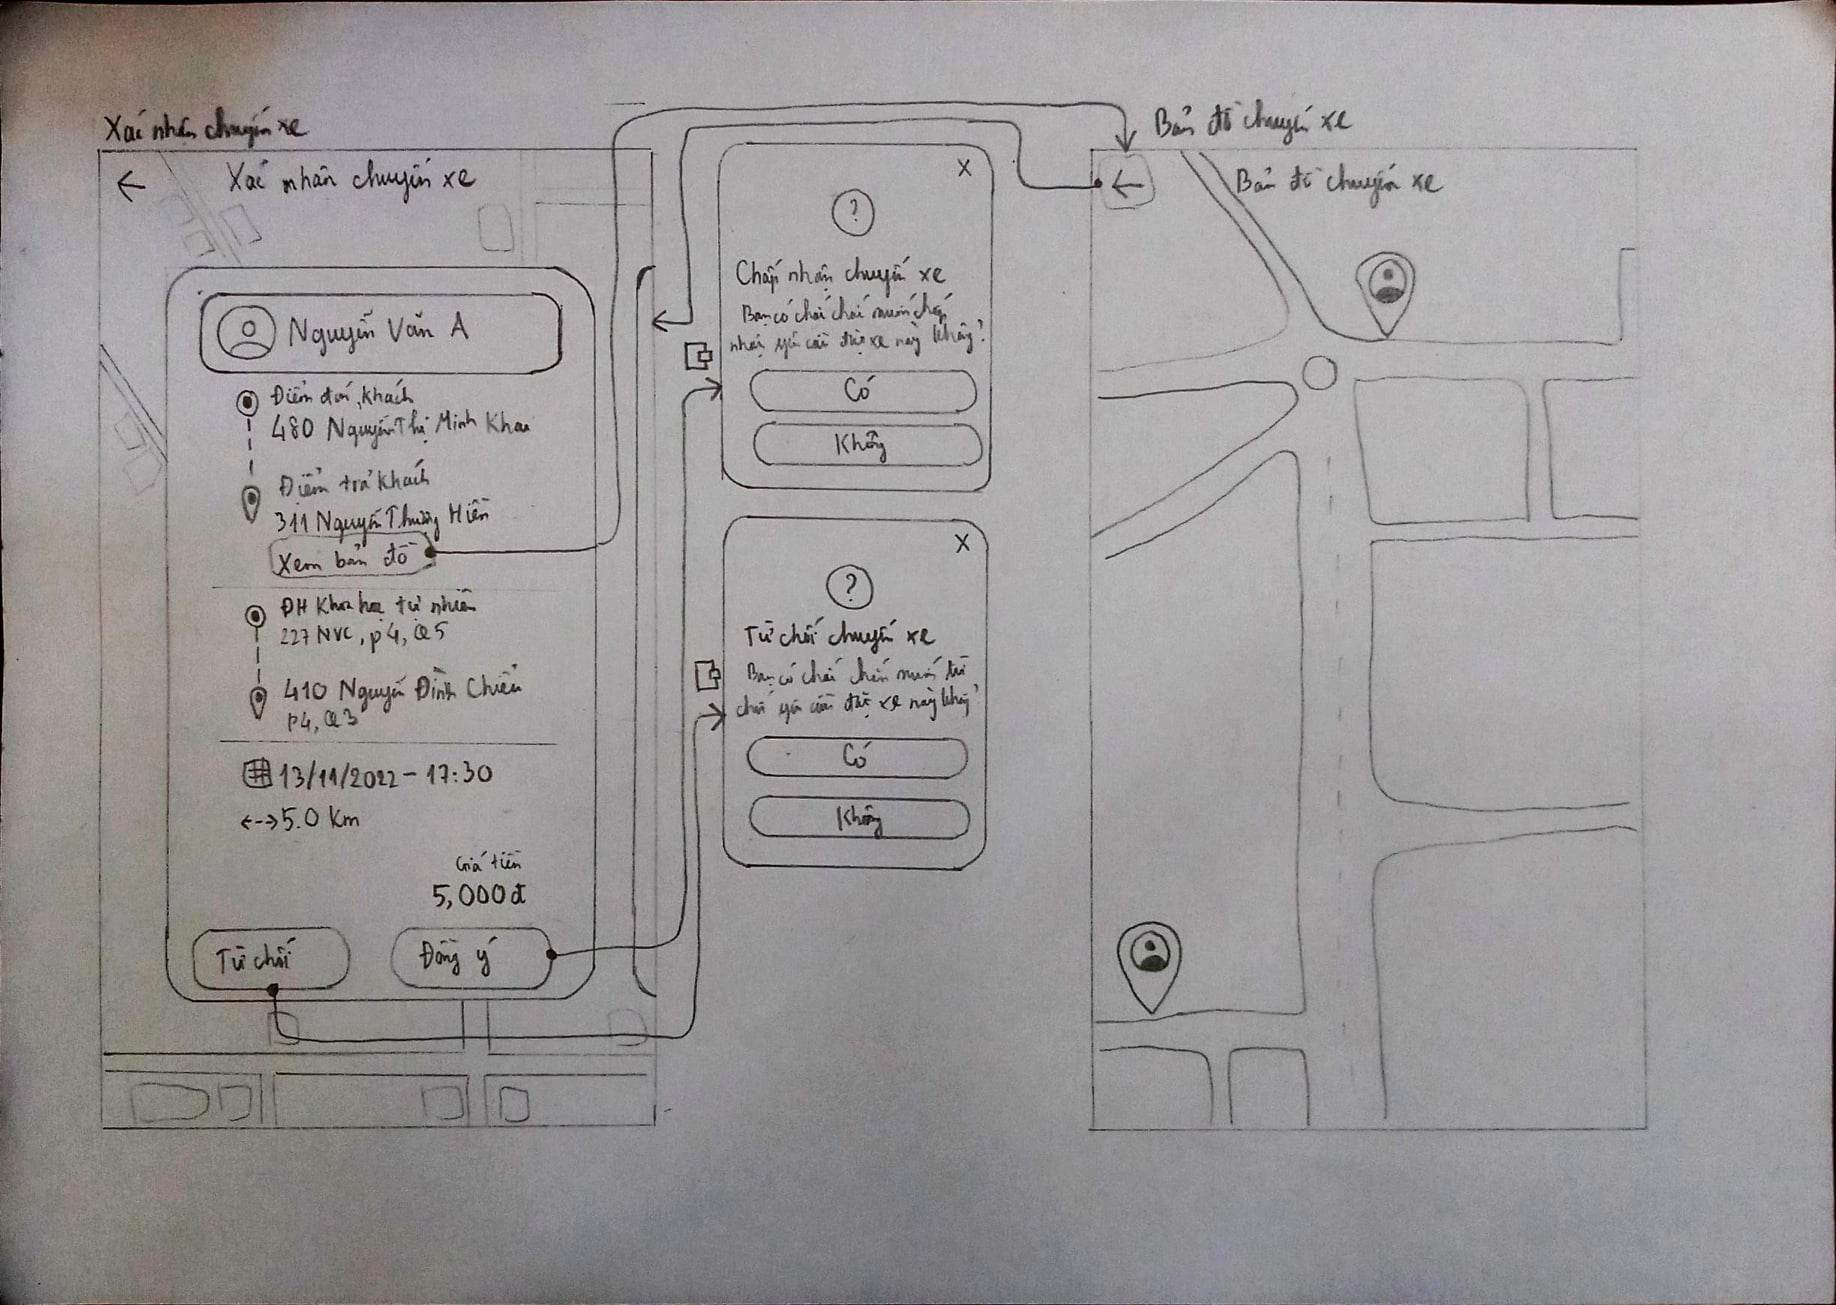 Xác nhận chuyến xe
Xác nhận chuyến xe
Nguyễn Văn A
Điểm đón khách
480 Nguyễn Thị Minh Khai
Điểm trả khách
311 Nguyễn Thượng Hiền
Xem bản đồ
ĐH Khoa học tự nhiên
227 NVC, p4, Q5
410 Nguyễn Đình Chiểu
P4, Q3
13/11/2022 - 17:30
5.0 Km
Giá tiền
5,000đ
Từ chối
Đồng ý
X
?
Chấp nhận chuyến xe
Bạn có chắc chắn muốn chấp
nhận yêu cầu đặt xe này không?
Có
Không
X
?
Từ chối chuyến xe
Bạn có chắc chắn muốn từ
chối yêu cầu đặt xe này không?
Có
Không
Bản đồ chuyến xe
Bản đồ chuyến xe